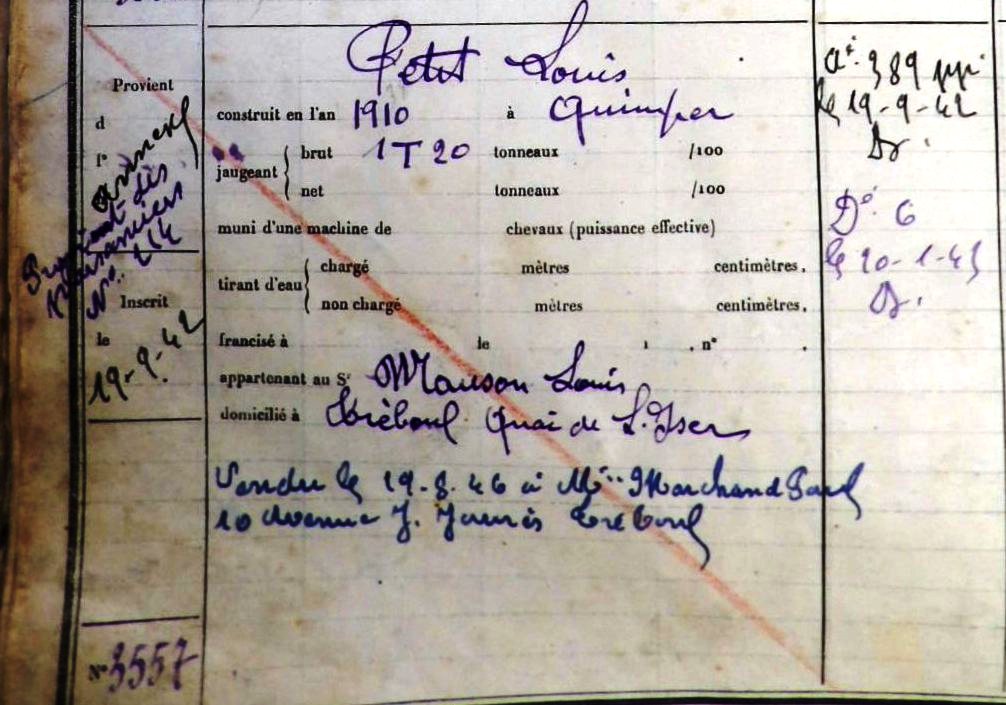 Petit Louis
Provient
construit en l'an 1910 à Quimper
d
jaugeant { brut 1 T 20 tonneaux /100
net tonneaux /100
l'annexe
muni d'une machine de chevaux (puissance effective)
tirant d'eau { chargé mètres centimètres.
non chargé mètres centimètres.
No. 214
Inscrit
le
19-9-42
francisé à le 1 . n° .
appartenant au Sr Mauson Louis
domicilié à Tréboul Quai de
Vendu le 19-8-46 à Mr Marchand Paul
10 Avenue J. Jaurès Tréboul
N° 3557
389
le 19-9-42
D° 6
le 20-1-43